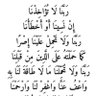 رَبَّنَا لَا تُؤَاخِذْنَا
إِنْ نَسِينَا أَوْ أَخْطَأْنَا
رَبَّنَا وَلَا تَحْمِلْ عَلَيْنَا إِصْرًا
كَمَا حَمَلْتَهُ عَلَى الَّذِينَ مِنْ قَبْلِنَا
رَبَّنَا وَلَا تُحَمِّلْنَا مَا لَا طَاقَةَ لَنَا بِهِ
وَاعْفُ عَنَّا وَاغْفِرْ لَنَا وَارْحَمْنَا